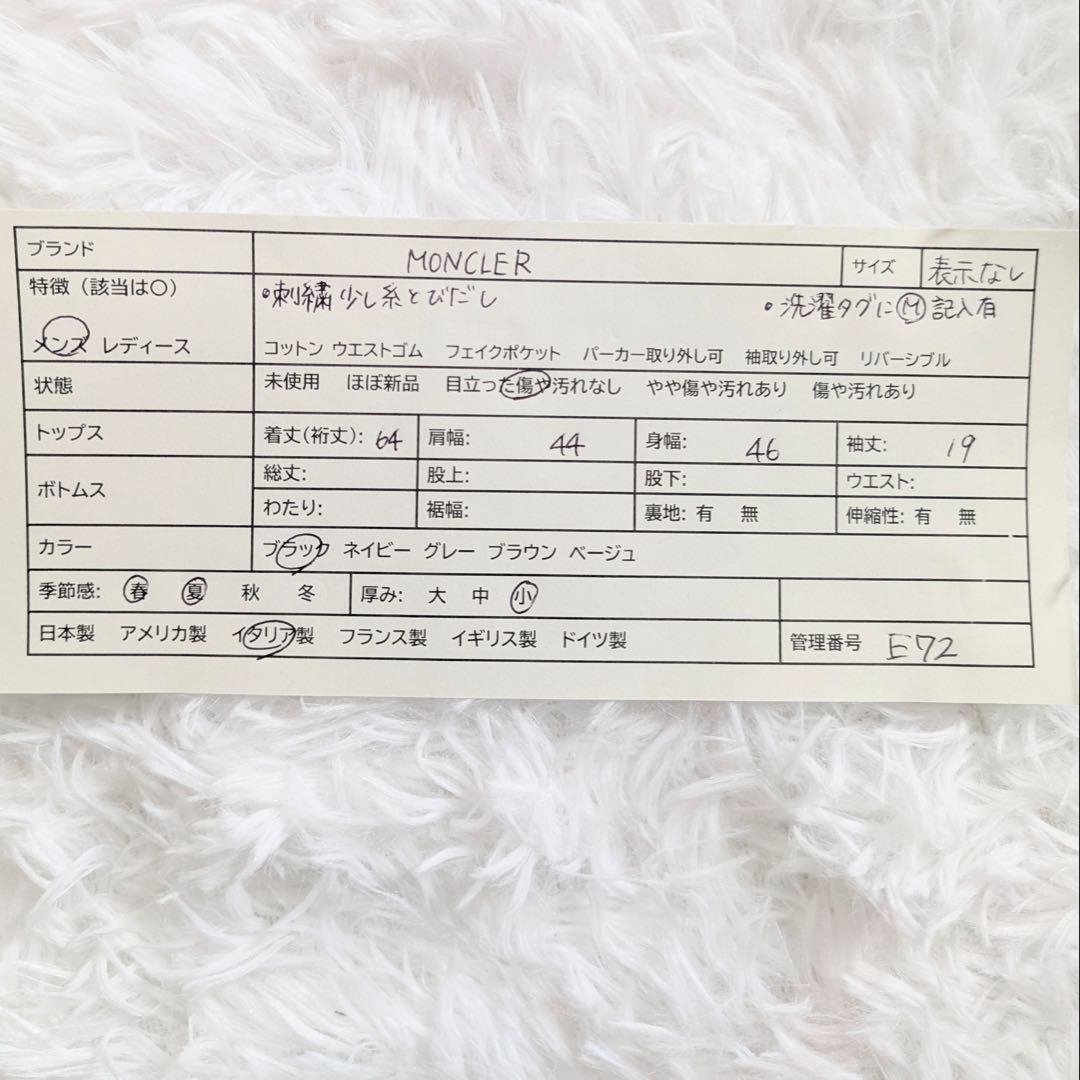 ブランド MONCLER サイズ 表示なし
特徴（該当は〇） •刺繍少し糸とびだし •洗濯タグにⓂ記入有
メンズ レディース コットン ウエストゴム フェイクポケット パーカー取り外し可 袖取り外し可 リバーシブル
状態 未使用 ほぼ新品 目立った傷や汚れなし やや傷や汚れあり 傷や汚れあり
トップス 着丈(裄丈): 64 肩幅: 44 身幅: 46 袖丈: 19
ボトムス 総丈: 股上: 股下: ウエスト:
わたり: 裾幅: 裏地: 有 無 伸縮性: 有 無
カラー ブラック ネイビー グレー ブラウン ベージュ
季節感: 春 夏 秋 冬 厚み: 大 中 小
日本製 アメリカ製 イタリア製 フランス製 イギリス製 ドイツ製 管理番号 E72